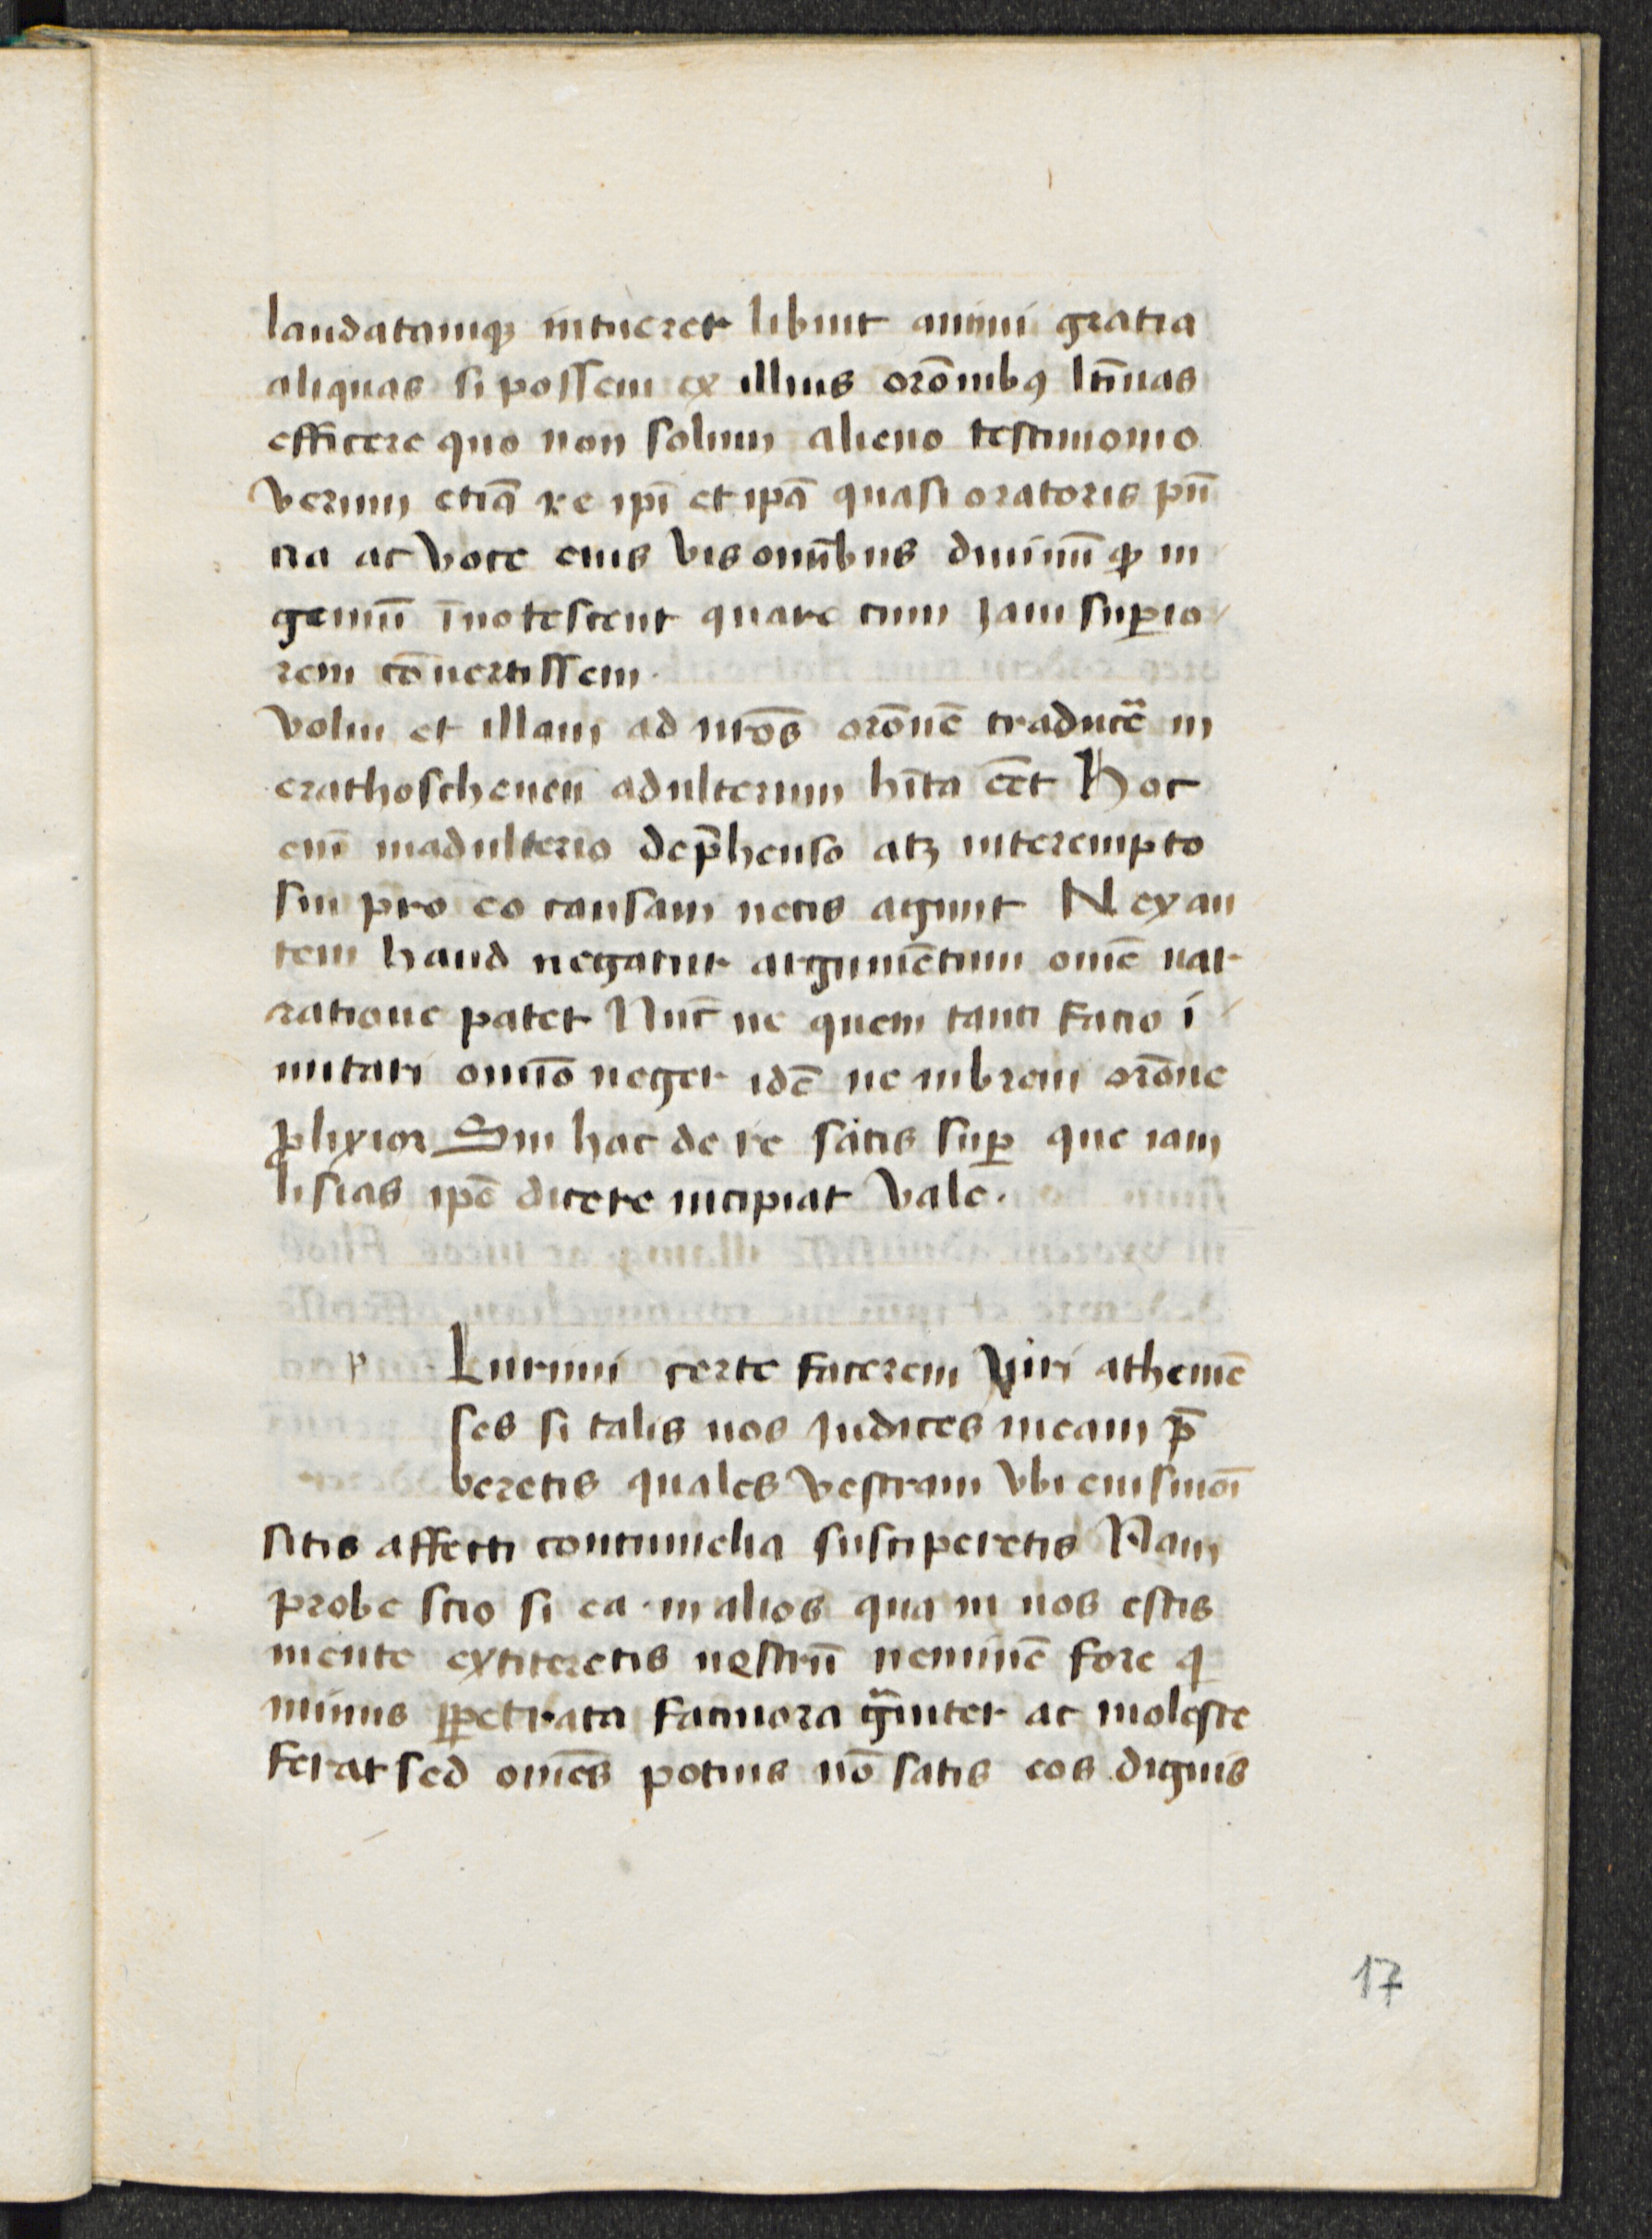 laudatamqꝫ intueret libuit animi gratia
aliquas si possem ex illius orōnibꝯ ltīnas
efficere quo non solum alieno testimonio
verum etiā re ipī et ipā quasi oratoris pn̄
tia ac voce eius vis omībus diuinūqꝫ in
geniū īnotescent quare cum jam supio
rem cōuertissem.
Volui et illam ad nr̄os orōnē traducē in
erathoschenen̄ adulterium hīta eēt Hoc
eni madulterio dep̄henso atꝫ interempto
sui pro eo causam necis agunt Nex au
tem haud negatur argumētum omē nar
ratione patet Nūc ne quem tanti facio i
mitari omīo neget idē ne mbrem orōne
ꝓlixior Sin hac de re satis suꝑ que iam
lisias ipē dicere incipiat Vale.
p Lurimi certe facerem Viri atheniē
ses si talis nos Judices meam p̄
beretis quales vestram vbi eiusmōi
sitis affecti contumelia susciperetis Nam
probe scio si ea in alios qua in nos estis
mente extiteretis nestrū neminē fore q
minus ꝑpetrata facinora g̃uiter ac moleste
ferat sed omēs potius nō satis eos dignis
17